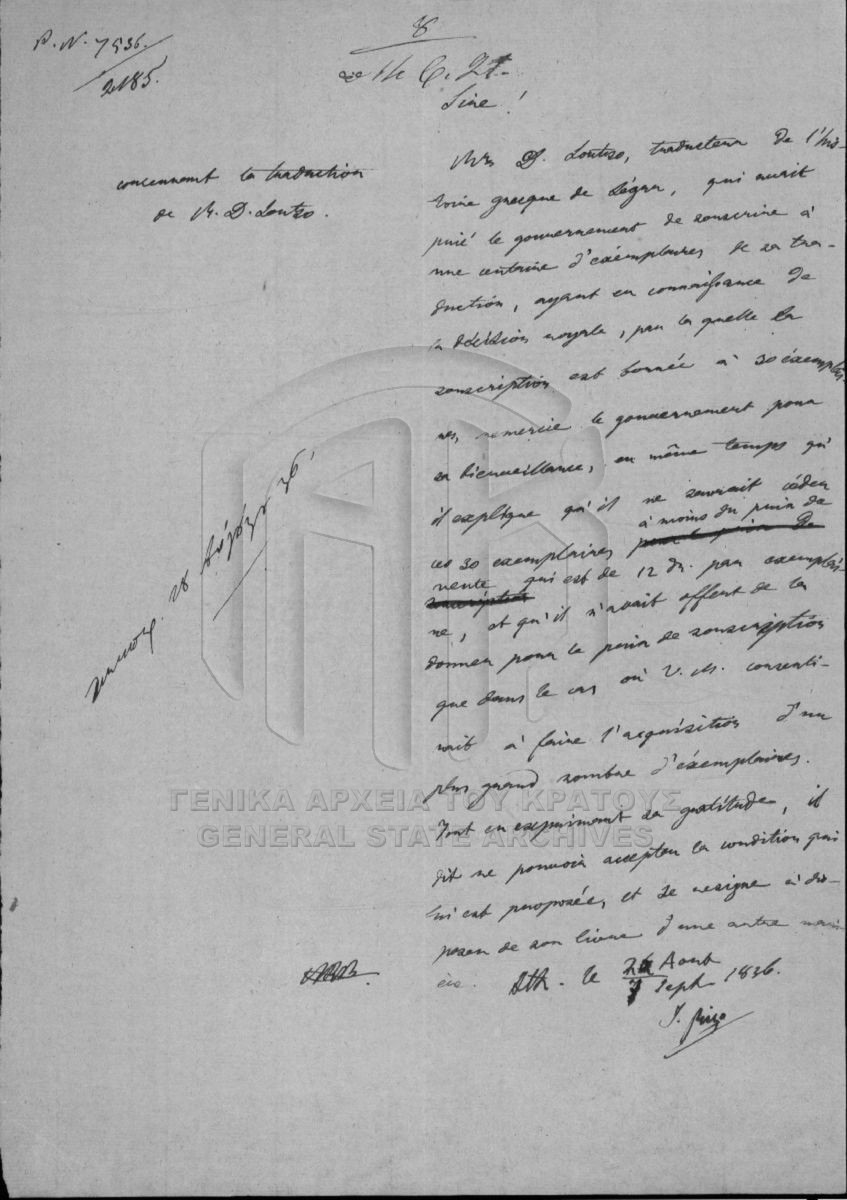 P. N. 7936.
2185.
8
Sire!
concernant la traduction
de M. D. Loutzo.
Mr D. Loutzo, traducteur de l'his-
toire grecque de Ségur, qui avait
prié le gouvernement de souscrire à
une centaine d'exémplaires de sa tra-
duction, ayant eu connaissance de
la décision royale, par la quelle la
souscription est bornée à 30 exémplai-
res, remercie le gouvernement pour
sa bienveillance, en même temps qu'
il explique qu'il ne saurait céder
ces 30 exemplaires à moins du prix de
vente qui est de 12 dr. par exemplai-
re, et qu'il n'avait offert de la
donner pour le prix de souscription
que dans le cas où V. M. consenti-
rait à faire l'acquisition d'un
plus grand nombre d'exémplaires.
Tout en exprimant sa gratitude, il
dit ne pouvoir accepter la condition qui
lui est proposée, et se resigne à dis-
poser de son livre d'une autre mani-
ère. Ath. le Aout
7 Sept. 1836.
J. Rizo
28
36
ΓΕΝΙΚΑ ΑΡΧΕΙΑ ΤΟΥ ΚΡΑΤΟΥΣ
GENERAL STATE ARCHIVES